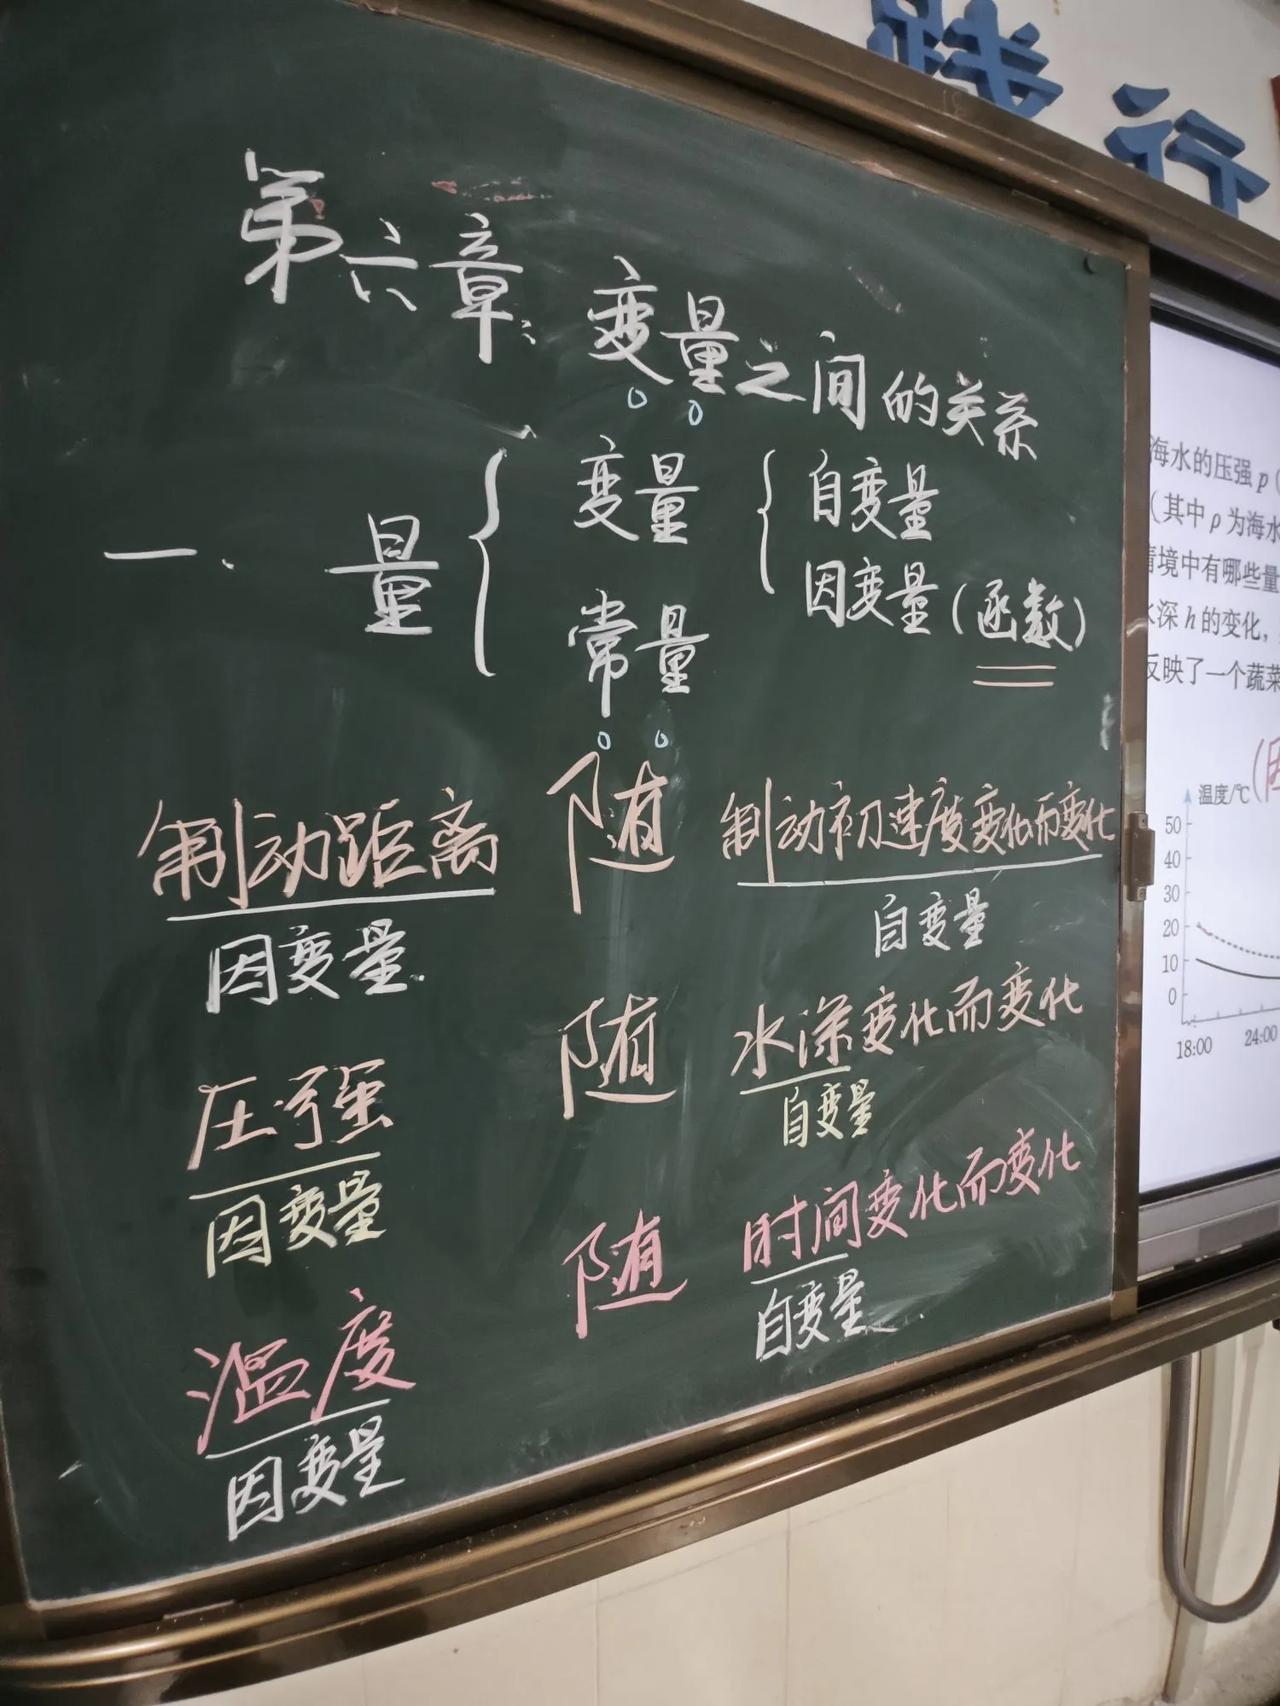 践行
第六章：变量之间的关系
一、量
变量
常量
自变量
因变量(函数)
制动距离 随 制动初速度变化而变化
因变量 自变量
压强 随 水深变化而变化
因变量 自变量
温度 随 时间变化而变化
因变量 自变量
海水的压强 p (
(其中 ρ 为海水
情境中有哪些量
水深 h 的变化，
反映了一个蔬菜
温度/℃
50
40
30
20
10
0
18:00 24:00